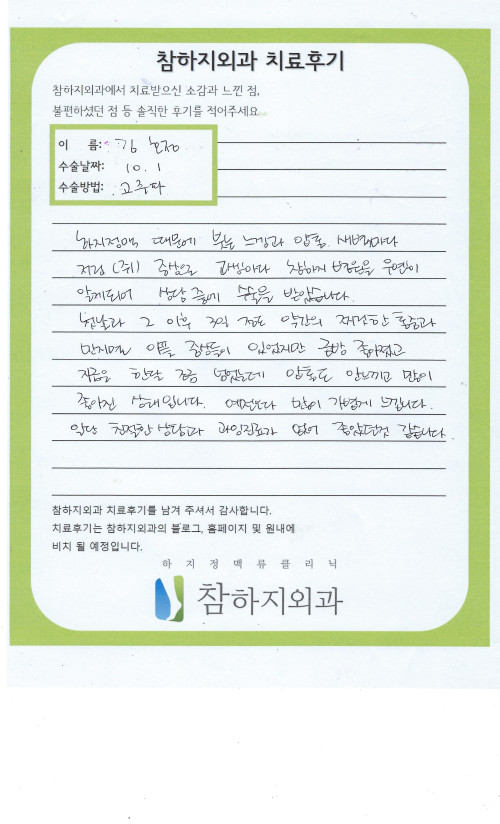 참하지외과 치료후기
참하지외과에서 치료받으신 소감과 느낀 점,
불편하셨던 점 등 솔직한 후기를 적어주세요.
이 름: 김
수술날짜: 10. 1
수술방법: 고주파
하지정맥 때문에 붓는 느낌과 압통. 새벽마다
저림 (쥐) 증상으로 고생하다 참하지 병원을 우연히
알게되어 상담 후에 수술을 받았습니다.
첫날과 그 이후 3일 정도 약간의 저릿한 통증과
만지면 아픈 증상들이 있었지만 금방 좋아졌고
지금은 한달 조금 넘었는데 압통도 안느끼고 많이
좋아진 상태입니다. 예전보다 많이 가볍게 느낍니다.
일단 친절한 상담과 과잉진료가 없어 좋았던것 같습니다
참하지외과 치료후기를 남겨 주셔서 감사합니다.
치료후기는 참하지외과의 블로그, 홈페이지 및 원내에
비치 될 예정입니다.
하지정맥류클리닉
참하지외과